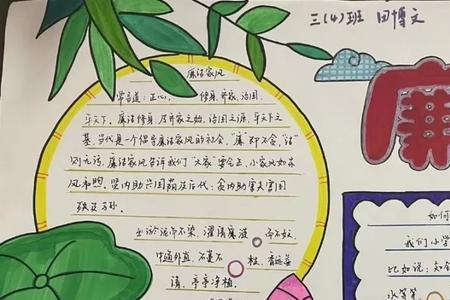 三(4)班 田博文
廉洁家风
常言道：正心、修身、齐家、治国、
平天下。廉洁修身，乃齐家之始，治国之源，平天下之
基。当代是一个倡导廉洁家风的社会，"廉"即不贪，"洁"
则无污。廉洁家风告诉我们"大家"要公正，小家
风
后代；贪内助
出淤泥而不染，濯清廉涟 而不妖
中通外直，不蔓不 枝，香远益
清，亭亭净植。
廉
如何
我们小学
比如说：
水等等